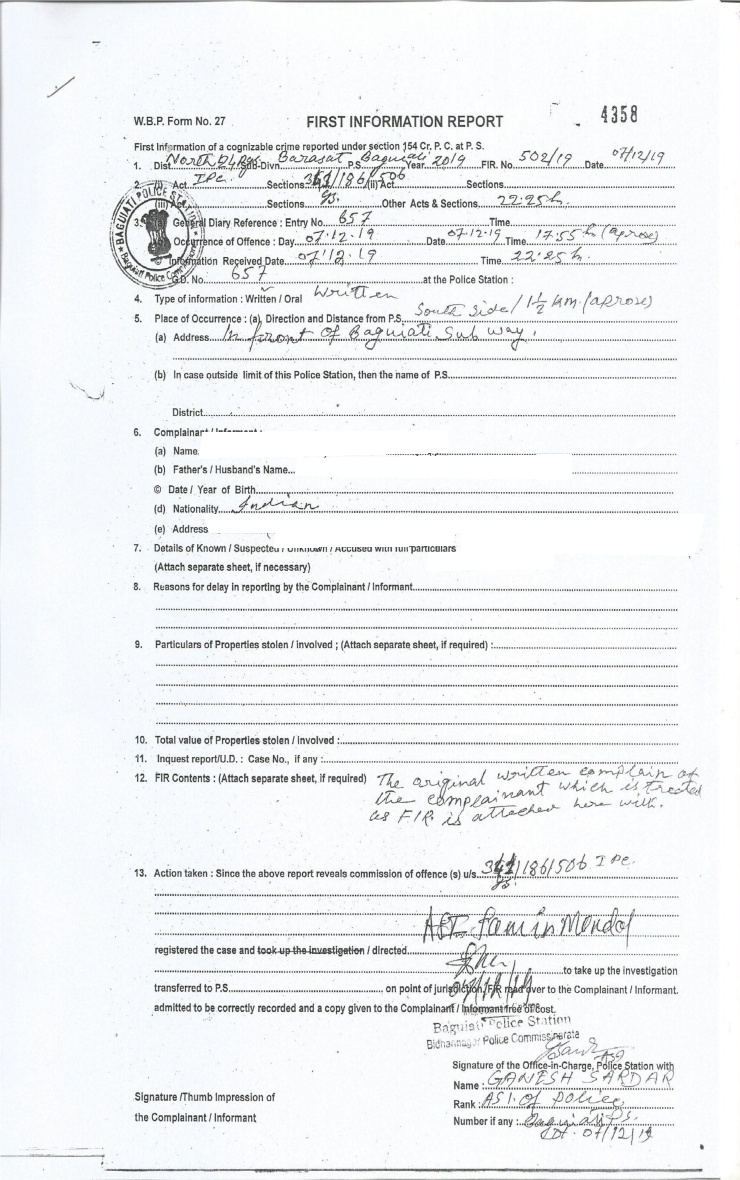 4358
W.B.P. Form No. 27 FIRST INFORMATION REPORT
First Information of a cognizable crime reported under section 154 Cr. P. C. at P. S.
1. Dist. North 24 Pgs. Sub-Divn. Barasat P.S. Baguiati Year 2019 FIR. No. 502/19 Date 07/12/19
2. (i) Act IPC Sections 341/186/506 (ii) Act Sections
(iii) Act Sections Other Acts & Sections 22.25 h.
3. General Diary Reference : Entry No. 657 Time
Occurrence of Offence : Day 07.12.19 Date 07.12.19 Time 17.55 h (aprox)
© Information Received Date 07.12.19 Time 22.25 h.
G.D. No. 657 at the Police Station :
4. Type of information : Written / Oral Written
5. Place of Occurrence : (a) Direction and Distance from P.S. South Side / 1½ km. (aprox)
(a) Address In front of Baguiati Sub way.
(b) In case outside limit of this Police Station, then the name of P.S.
District
6. Complainant / Informant :
(a) Name
(b) Father's / Husband's Name...
© Date / Year of Birth
(d) Nationality Indian
(e) Address
7. Details of Known / Suspected / Unknown / Accused with full particulars
(Attach separate sheet, if necessary)
8. Reasons for delay in reporting by the Complainant / Informant
9. Particulars of Properties stolen / involved ; (Attach separate sheet, if required) :
10. Total value of Properties stolen / involved :
11. Inquest report/U.D. : Case No., if any :
12. FIR Contents : (Attach separate sheet, if required) The original written complain of
the complainant which is treated
as FIR is attached here with.
13. Action taken : Since the above report reveals commission of offence (s) u/s. 341/186/506 IPC.
registered the case and took up the investigation / directed
to take up the investigation
transferred to P.S. on point of jurisdiction, FIR read over to the Complainant / Informant.
admitted to be correctly recorded and a copy given to the Complainant / Informant free of cost.
07/12/19
Baguiati Police Station
Bidhannagar Police Commissionerate
Signature of the Office-in-Charge, Police Station with
Name : GANESH SARDAR
Rank : ASI. of Police,
Number if any : Baguiati P.S.
Dt. 07/12/19
Signature /Thumb Impression of
the Complainant / Informant
BAGUIATI POLICE STATION